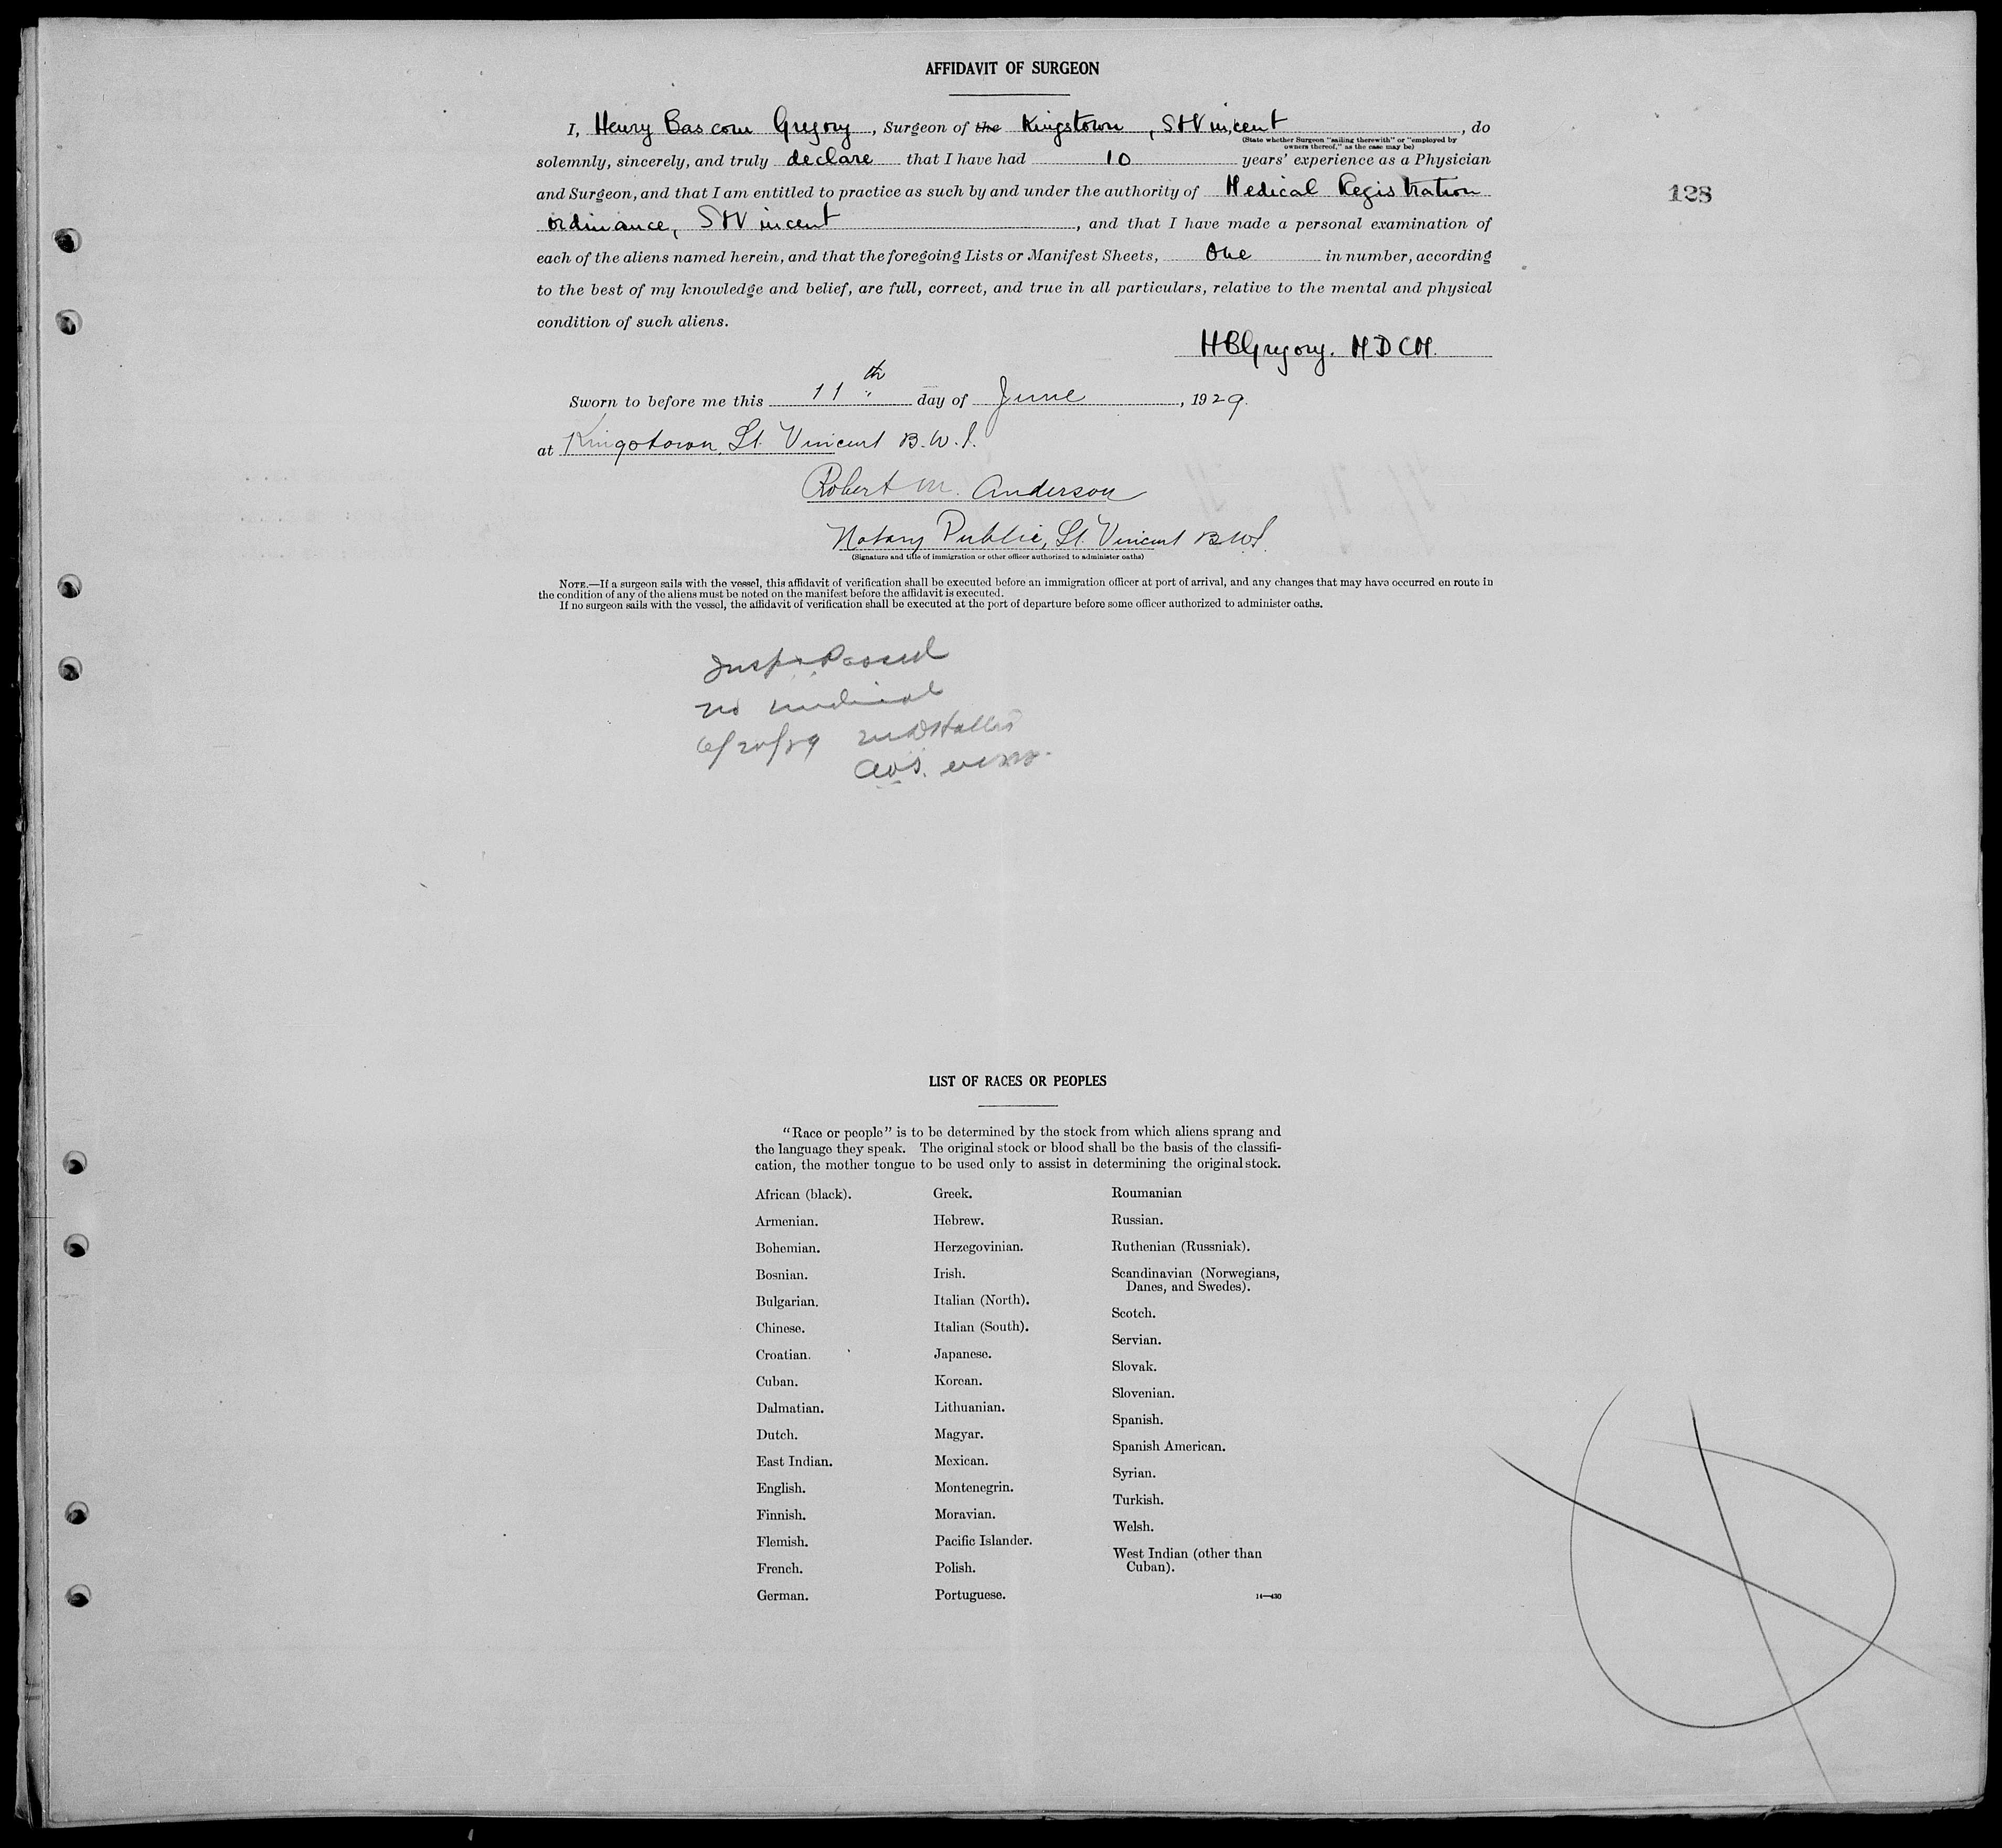 AFFIDAVIT OF SURGEON
I, Henry Bascom Gregory, Surgeon of the Kingstown, St Vincent, do
(State whether Surgeon "sailing therewith" or "employed by
owners thereof," as the case may be)
solemnly, sincerely, and truly declare that I have had 10 years' experience as a Physician
and Surgeon, and that I am entitled to practice as such by and under the authority of Medical Registration
128
ordinance, St Vincent, and that I have made a personal examination of
each of the aliens named herein, and that the foregoing Lists or Manifest Sheets, One in number, according
to the best of my knowledge and belief, are full, correct, and true in all particulars, relative to the mental and physical
condition of such aliens.
HBGregory. M D C M.
Sworn to before me this 11th day of June, 1929.
at Kingstown, St. Vincent B.W.I.
Robert M. Anderson
Notary Public, St. Vincent B.W.I.
(Signature and title of immigration or other officer authorized to administer oaths)
NOTE.—If a surgeon sails with the vessel, this affidavit of verification shall be executed before an immigration officer at port of arrival, and any changes that may have occurred en route in
the condition of any of the aliens must be noted on the manifest before the affidavit is executed.
If no surgeon sails with the vessel, the affidavit of verification shall be executed at the port of departure before some officer authorized to administer oaths.
Insp & Passed
no medical
6/20/29
LIST OF RACES OR PEOPLES
"Race or people" is to be determined by the stock from which aliens sprang and
the language they speak. The original stock or blood shall be the basis of the classifi-
cation, the mother tongue to be used only to assist in determining the original stock.
African (black).
Armenian.
Bohemian.
Bosnian.
Bulgarian.
Chinese.
Croatian.
Cuban.
Dalmatian.
Dutch.
East Indian.
English.
Finnish.
Flemish.
French.
German.
Greek.
Hebrew.
Herzegovinian.
Irish.
Italian (North).
Italian (South).
Japanese.
Korean.
Lithuanian.
Magyar.
Mexican.
Montenegrin.
Moravian.
Pacific Islander.
Polish.
Portuguese.
Roumanian
Russian.
Ruthenian (Russniak).
Scandinavian (Norwegians,
Danes, and Swedes).
Scotch.
Servian.
Slovak.
Slovenian.
Spanish.
Spanish American.
Syrian.
Turkish.
Welsh.
West Indian (other than
Cuban).
14—430